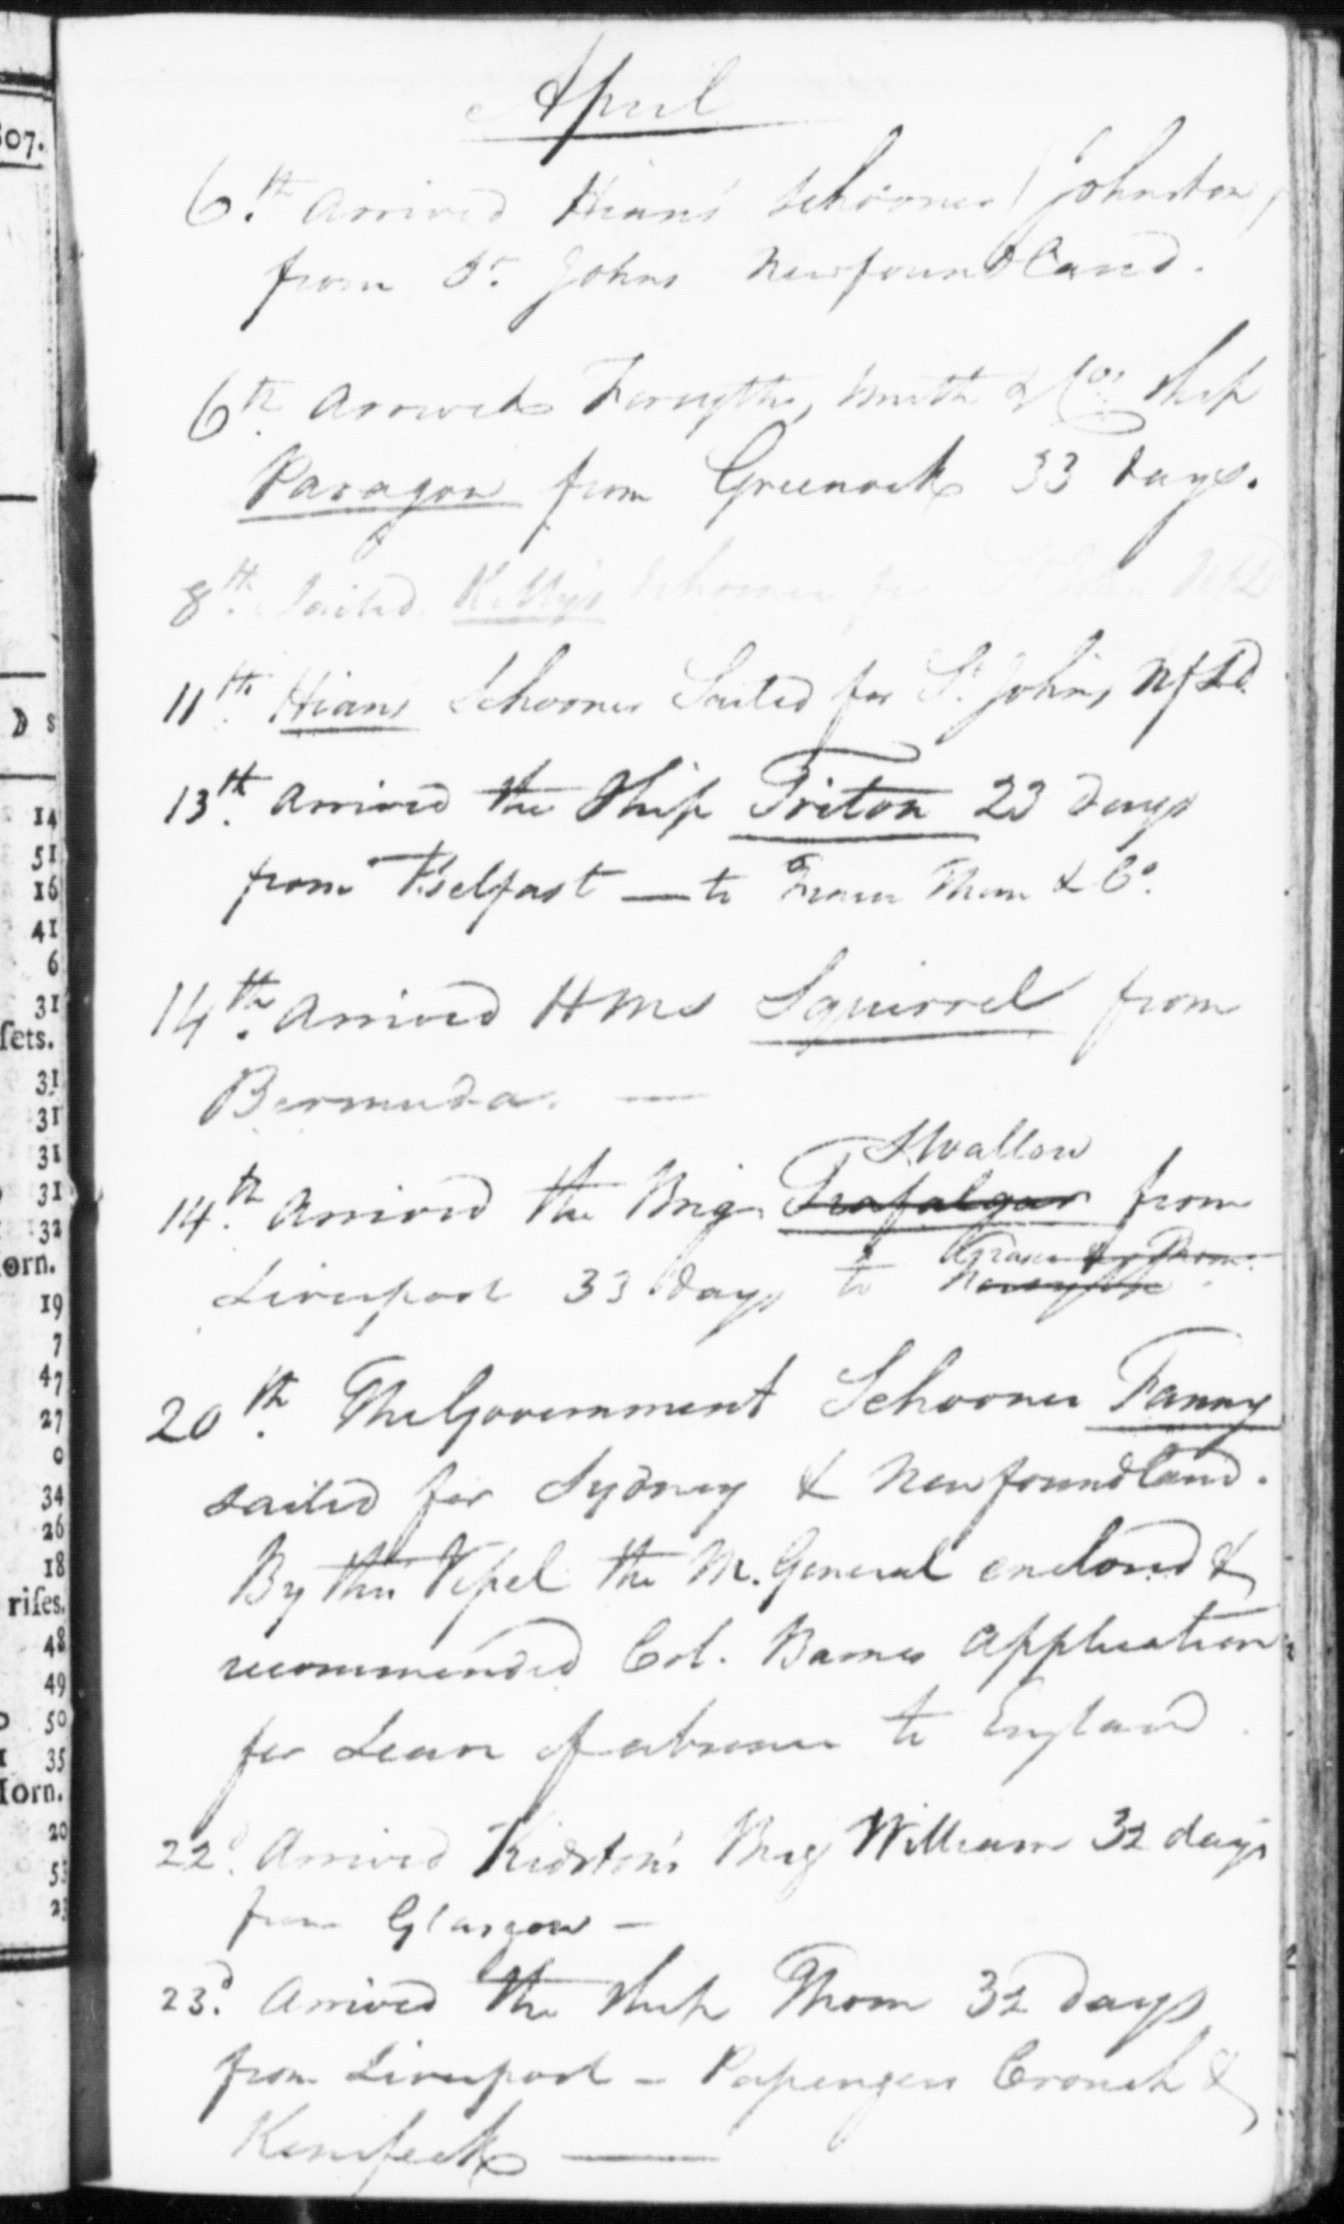 807.
D s
14
51
16
41
6
31
ſets.
31
31
31
31
32
orn.
19
7
47
27
0
34
26
18
riſes.
48
49
50
35
Iorn.
20
53
23
April
6.th Arrived Hians Schooner (Johnston)
from St. Johns Newfoundland.
6th Arrived Forsyth, Smith & Cos. Ship
Paragon from Greenock 33 days.
8th. Sailed Kelly's Schooner for St John Nfld
11th. Hians Schooner Sailed for St. Johns Nfld.
13th. Arrived the Ship Triton 23 days
from Belfast — to Fraser Thom & Co.
14th. Arrived HMS Squirrel from
Bermuda. —
Swallow
14th. Arrived the Brig Trafalgar from
Fraser & Thom.
Liverpool 33 days to
20th. The Government Schooner Fanny
sailed for Sydney & Newfoundland.
By this Vessel the M. General enclosed &
recommended Col. Barnes Application
for Leave of absence to England
22d. Arrived Kidston's Brig William 32 days
from Glasgow —
23d. Arrived the Ship Thom 32 days
from Liverpool — Passengers Crouch &